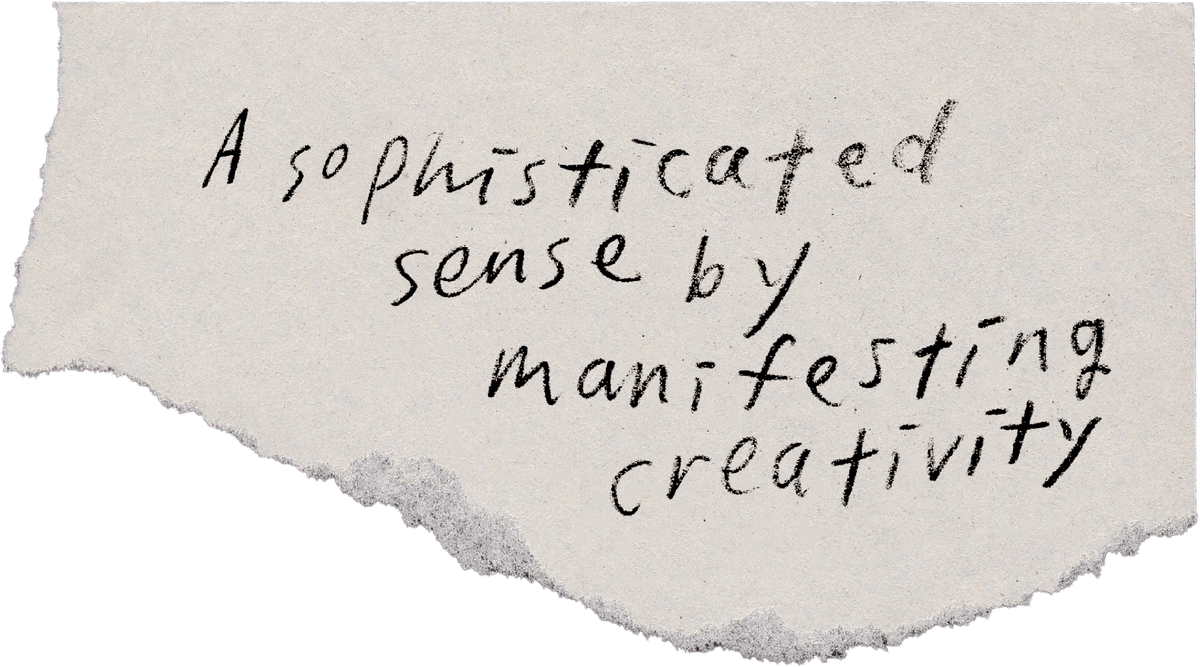 A sophisticated
sense by
manifesting
creativity